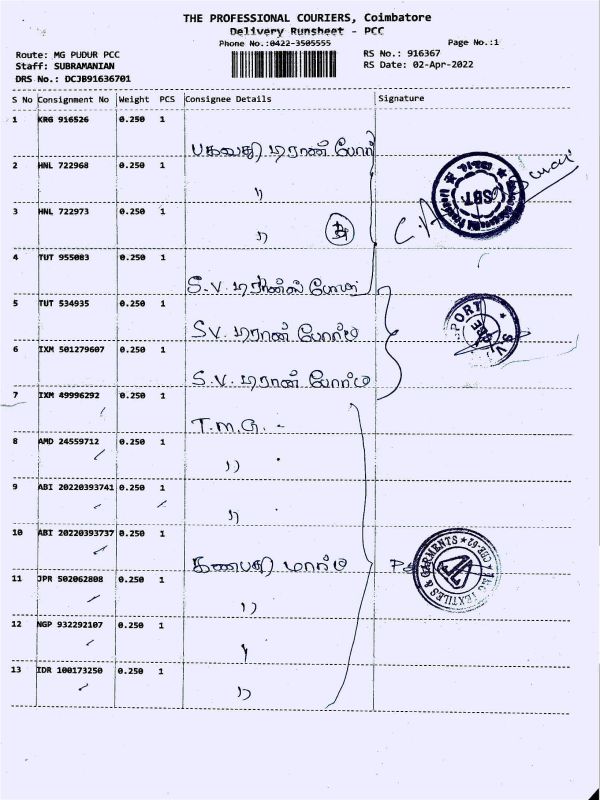 THE PROFESSIONAL COURIERS, Coimbatore
Delivery Runsheet - PCC
Phone No.:0422-3505555 Page No.:1
Route: MG PUDUR PCC RS No.: 916367
Staff: SUBRAMANIAN RS Date: 02-Apr-2022
DRS No.: DCJB91636701
S No Consignment No Weight PCS Consignee Details Signature
1 KRG 916526 0.250 1 பகவதி டிரான்
2 HNL 722968 0.250 1 "
3 HNL 722973 0.250 1 "
4 TUT 955083 0.250 1 S.V. டிரான்ஸ்
5 TUT 534935 0.250 1 SV. டிரான் போர்ட்
6 IXM 501279607 0.250 1 S.V. டிரான் போர்ட்
7 IXM 49996292 0.250 1 T.M.G. -
8 AMD 24559712 0.250 1 "
9 ABI 20220393741 0.250 1 "
10 ABI 20220393737 0.250 1 கணபதி மார்ட்
11 JPR 502062808 0.250 1 "
12 NGP 932292107 0.250 1 "
13 IDR 100173250 0.250 1 "
SBT.
TEXTILES & GARMENTS